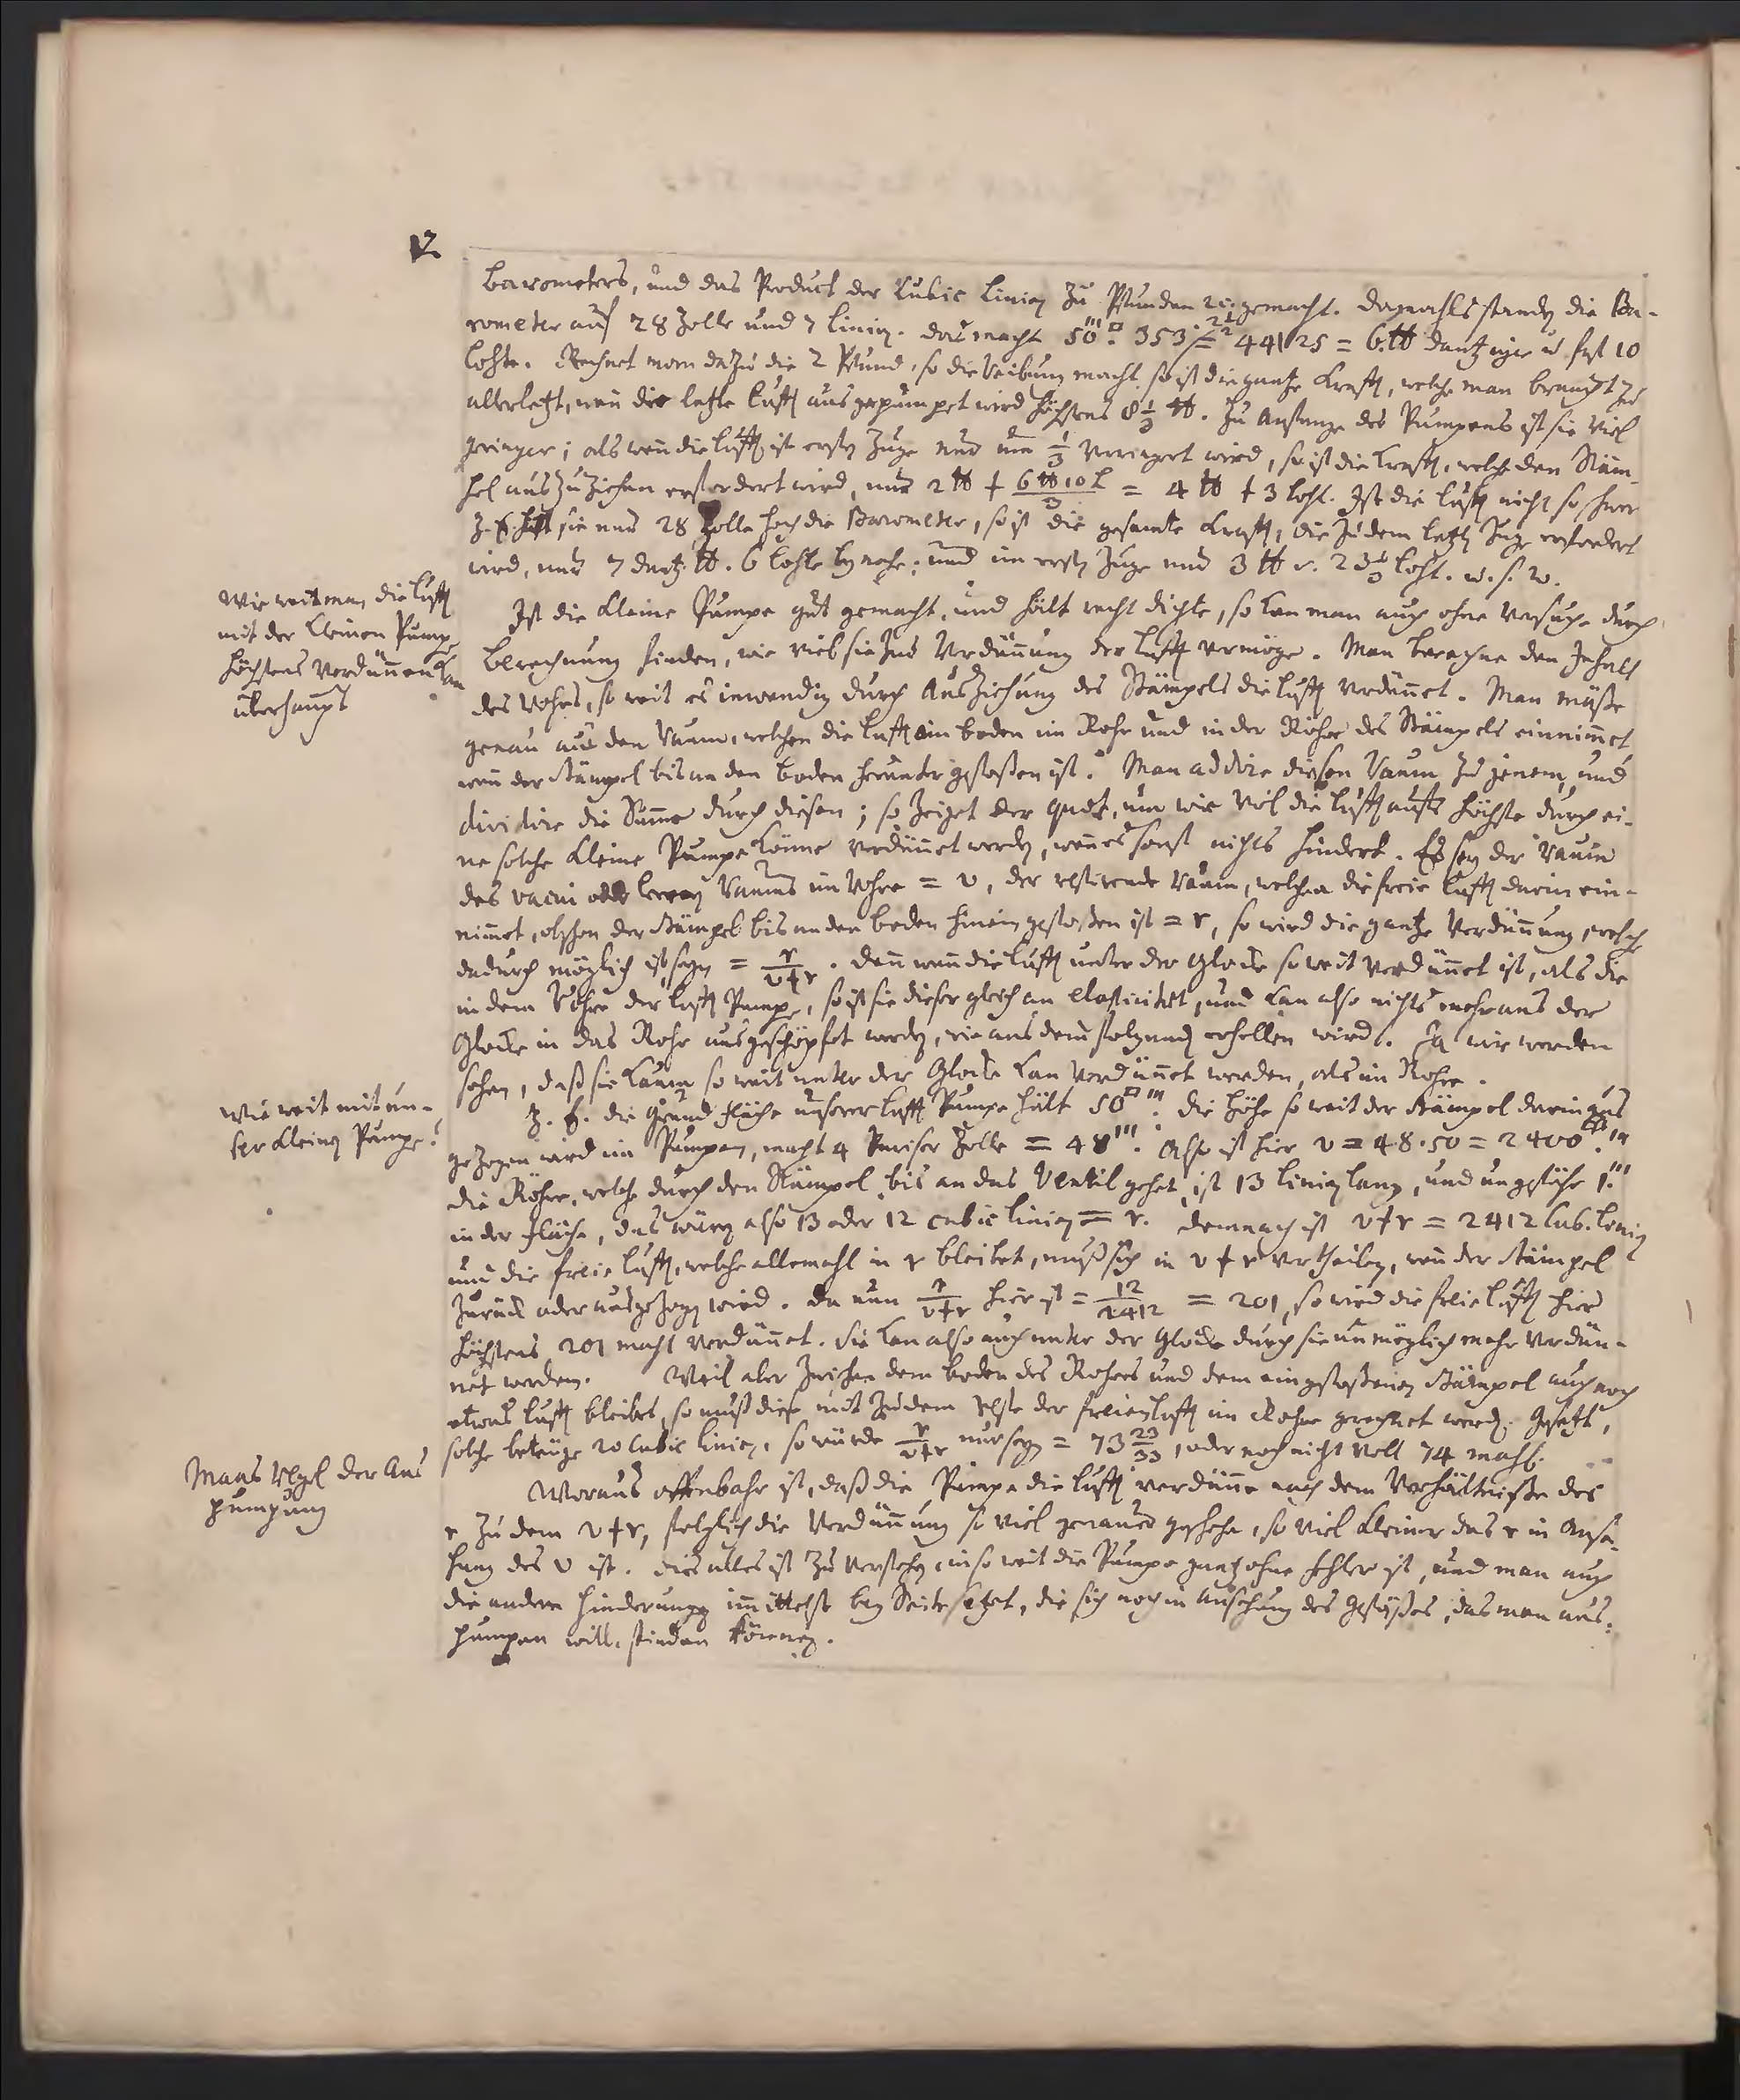 12
Barometers, und das Product der Cubic Linien zu Pfunden gemacht. Damahls standen die Ba-
rometer auf 28 Zolle und 7 Linien. das macht 50'''. 353 = 44125 = 6. ℔ dantziger u. fast 10
Lohte. Rechnet man dazu die 2 Pfund, so die Reibung macht, so ist die gantze Krafft, welche man braucht zu
allerletzt, wen die letzte Lufft ausgepumpet wird höchstens 8 1/3 ℔. Zu Anfange des Pumpens ist sie viel
geringer; als wen die Lufft im ersten Zuge nur um 1/3 verringert wird, so ist die Krafft, welche den Stäm-
pel auszuziehen erfordert wird, nur 2 ℔ + 6 ℔ 10 L / 3 = 4 ℔ + 3 Loht. Ist die Lufft nicht so schwer
z. E. hält sie nur 28 Zolle hoch die Barometer, so ist die gesamte Krafft, die zu dem letzten Zuge erfordert
wird, nur 7 dantz. ℔. 6 Lohte beynahe; und im ersten Zuge nur 3 ℔ u. 23 1/3 Loht. u. s. w.
Wie weit man die Lufft
mit der kleinen Pumpe
höchstens verdünnen kan
überhaupt
Ist die kleine Pumpe gut gemacht, und hält recht dichte, so kan man auch ohne Versuche durch
Berechnung finden, wie viel sie zur Verdünnung der Lufft vermöge. Man berechne den Inhalt
des Rohrs, so weit es inwendig durch Ausziehung des Stämpels die Lufft verdünnet. Man mäße
genau aus den Raum, welchen die Lufft am boden im Rohr und in der Röhre des Stämpels einnimmet
wen der Stämpel bis an den boden herunter gestoßen ist. Man addire diesen Raum zu jenem, und
dividire die Summe durch diesen; so zeiget der Quot, um wie viel die Lufft aufs höchste durch ei-
ne solche kleine Pumpe könne verdünnet werden, wen es sonst nichts hindert. Es sey der Raum
des vacui oder leeren Raums im Rohre = v, der restirende Raum, welchen die freie Lufft darin ein-
nimmet, obschon der Stämpel bis an den boden hinein gestoßen ist = r, so wird die gantze Verdünnung, welche
dadurch möglich ist, seyn = r/v+r. Denn wen die Lufft unter der Glocke so weit verdünnet ist, als die
in dem Rohre der Lufft Pumpe, so ist sie dieser gleich an elasticität, und kan also nichts mehr aus der
Glocke in das Rohr ausgeschöpfet werden, wie aus dem folgenden erhellen wird. Ja wir werden
sehen, daß sie kaum so weit unter der Glocke kan verdünnet werden, als im Rohre.
Wie weit mit un-
ser kleinen Pumpe?
Z. E. die Grund fläche unserer Lufft Pumpe hält 50 □'''. die Höhe so weit der Stämpel darin aus
gezogen wird im Pumpen, macht 4 Pariser Zolle = 48'''. Also ist hier v = 48 . 50 = 2400 '''.
die Röhre, welche durch den Stämpel bis an das Ventil gehet, ist 13 Linien lang, und ungefähr 1'''
in der fläche, das wären also 13 oder 12 cubic Linien = r. demnach ist v+r = 2412 Cub. Linien
und die freie Lufft, welche allemahl in r bleibet, muß sich in v + r vertheilen, wen der Stämpel
zurück oder ausgezogen wird. Da nun r/v+r hier ist = 12/2412 = 201, so wird die freie Lufft hier
höchstens 201 mahl verdünnet. Sie kan also auch unter der Glocke durch sie unmöglich mehr verdün-
net werden. Weil aber zwischen dem boden des Rohres und dem eingestoßenen Stämpel auch noch
etwas Lufft bleibet, so muß diese mit zu dem Reste der freien Lufft im Rohre gerechnet werden. Gesetzt,
solche betrüge 20 Cubic Linien, so würde r/v+r nur seyn = 73 23/33, oder noch nicht voll 74 mahl.
Maas Regel der Aus
pumpung
Woraus offenbahr ist, daß die Pumpe die Lufft verdünne nach dem Verhältniße des
r zu dem v+r, folglich die Verdünnung so viel genauer geschehe, so viel kleiner das r in Anse-
hung des v ist. Dis alles ist zu verstehen, in so weit die Pumpe gantz ohne fehler ist, und man auch
die andern Hinderungen immittelst bey Seite setzet, die sich noch in Ansehung des Gefäßes, das man aus-
pumpen will, finden können.